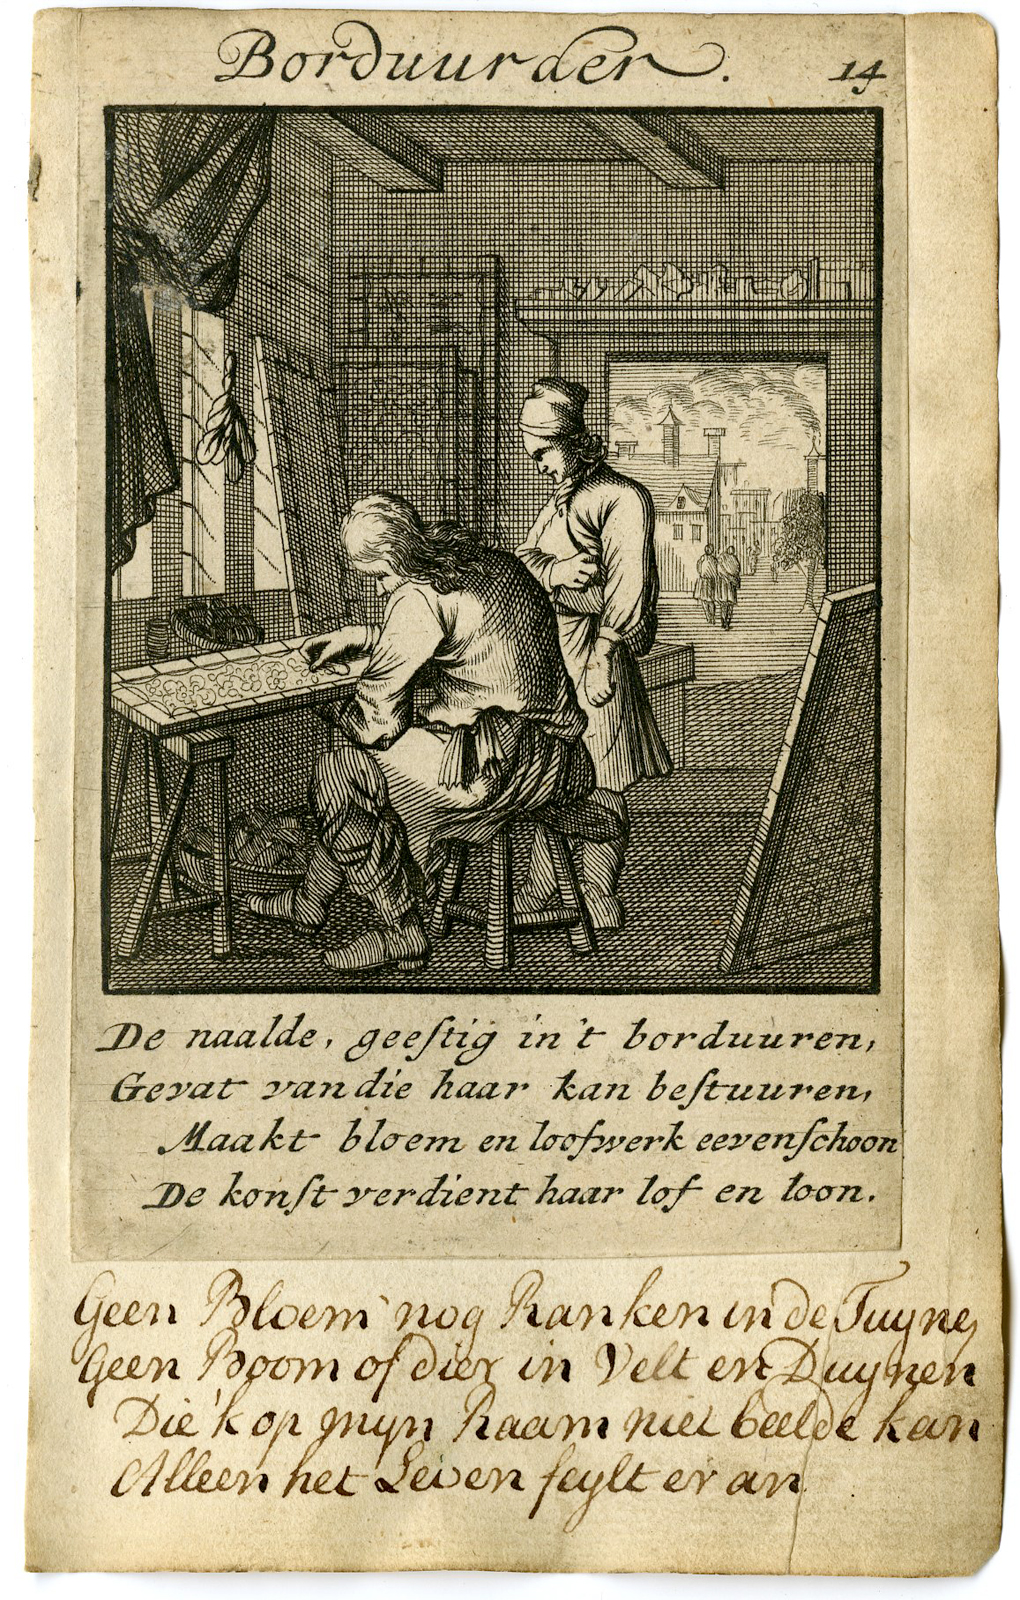 Borduurder.
14
De naalde, geeſtig in't borduuren,
Gevat van die haar kan beſtuuren,
Maakt bloem en loofwerk eevenſchoon
De konſt verdient haar lof en loon.
Geen Bloem nog Ranken in de Tuyne,
Geen Boom of dier in Velt en Duynen
Die 'k op myn Raam niet beelde kan
Alleen het Leven feylt er an